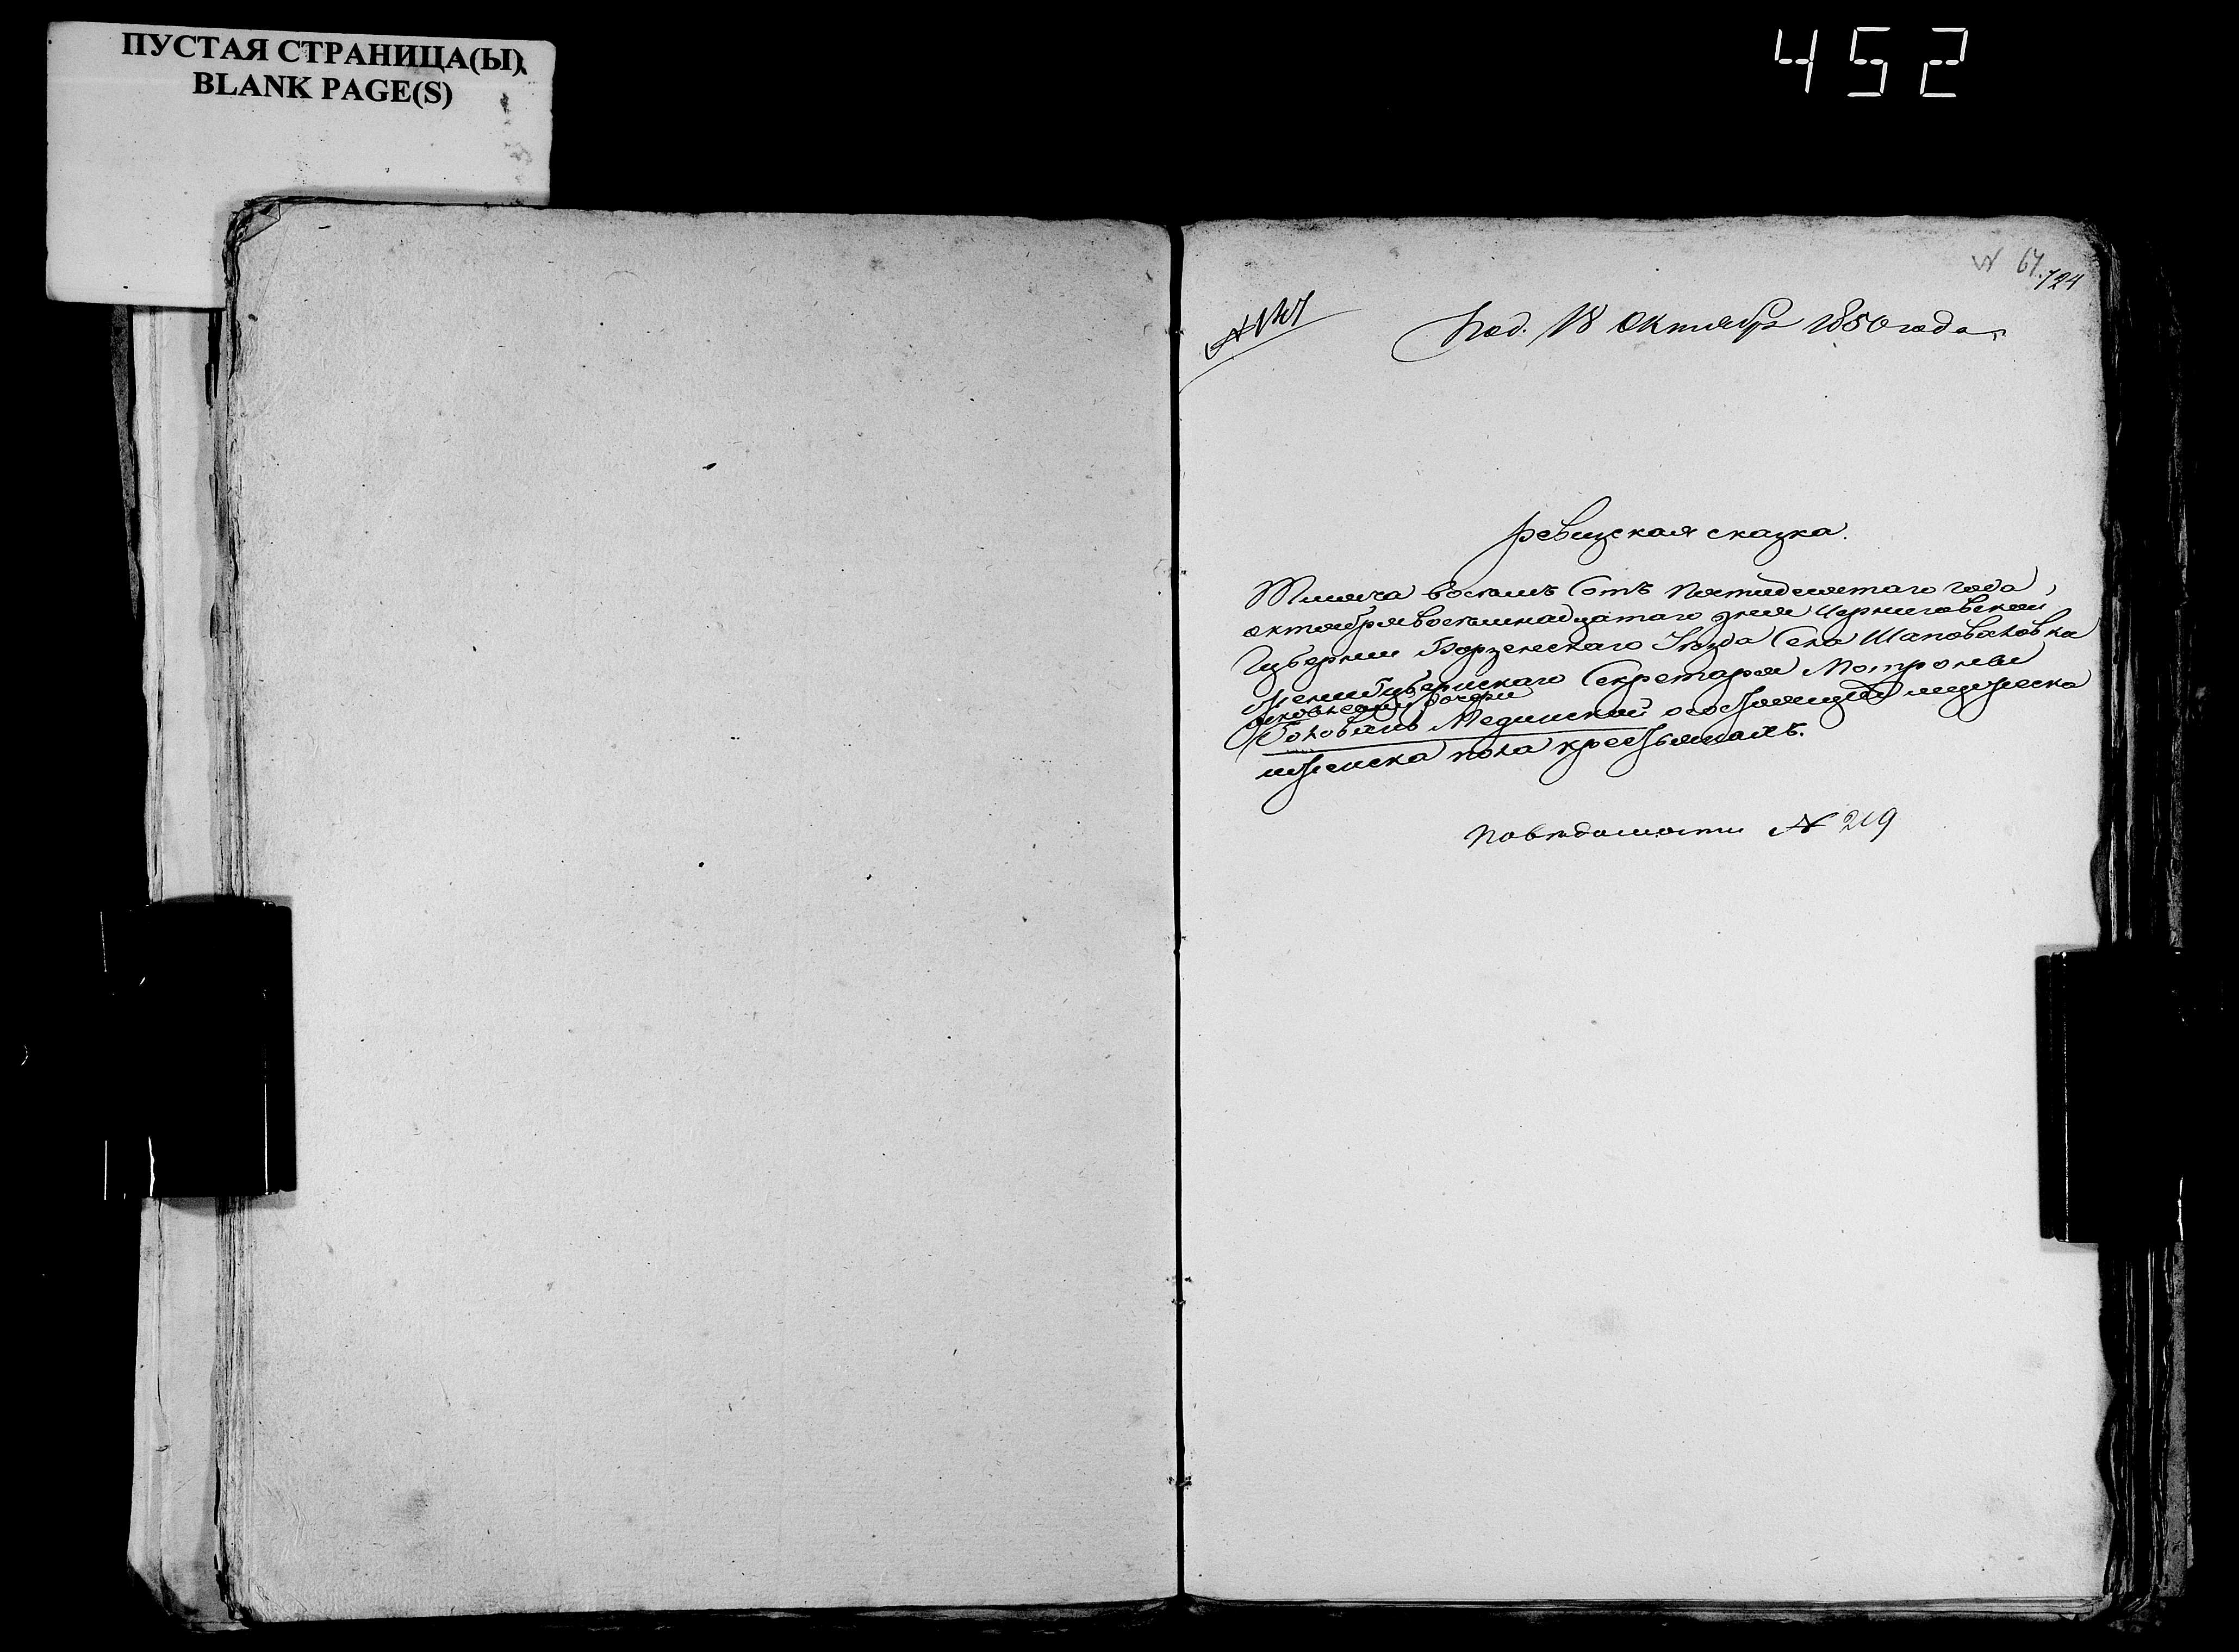 ПУСТАЯ СТРАНИЦА(Ы)
BLANK PAGE(S)
452
№ 67. 724
Под. 18 Октября 1850 года.
Ревизская сказка.
Тысяча восемь Сотъ Пятидесятаго года,
октября восемнадцатаго дня Черниговской
Губернии Борзенскаго Уезда Села Шаповаловка
жены Губернскаго Секретаря Мотроны
дочери
Мединской о состоящихъ мужеска
и женска пола крестьянахъ.
По ведомости № 219